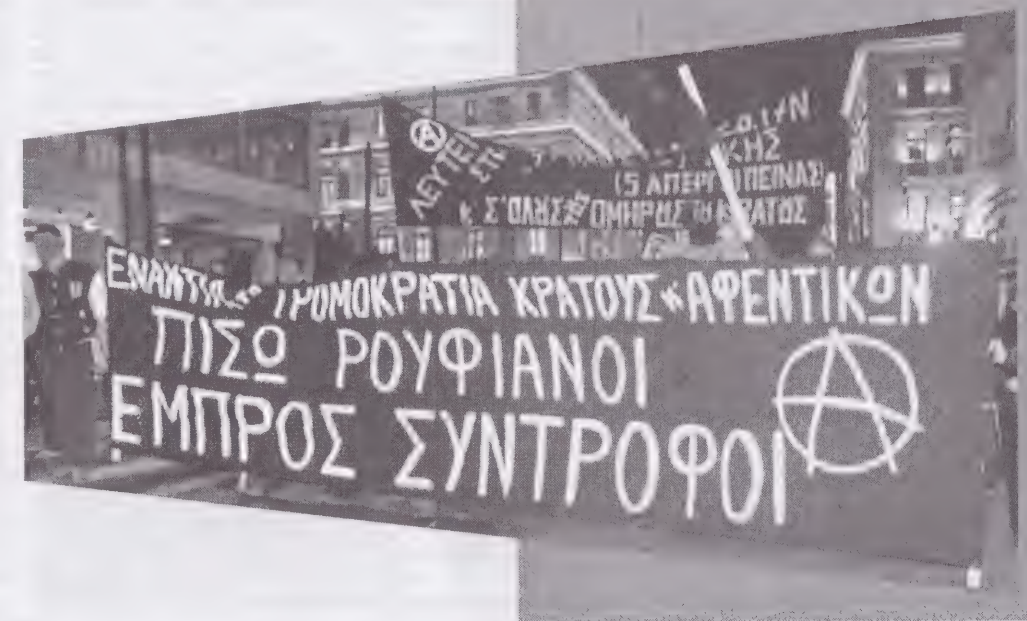 ΛΕΥΤΕΡΙΑ
ΣΤΙ
ΚΗΣ
(5 ΑΠΕΡΓΟΙ ΠΕΙΝΑΣ)
ΟΜΗΡΟΣ ΤΟΥ ΚΡΑΤΟΥΣ
ΕΝΑΝΤΙΑ ΤΡΟΜΟΚΡΑΤΙΑ ΚΡΑΤΟΥΣ Κ ΑΦΕΝΤΙΚΩΝ
ΠΙΣΩ ΡΟΥΦΙΑΝΟΙ
ΕΜΠΡΟΣ ΣΥΝΤΡΟΦΟΙ